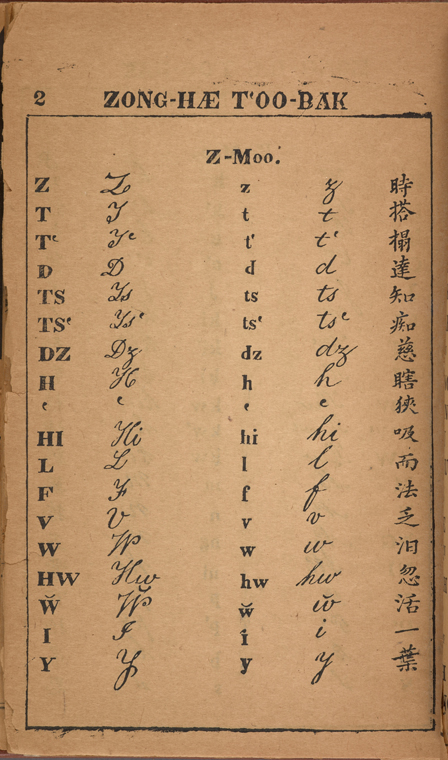 2 ZONG-HÆ TʻOO-BAK
Z-Moo.
Z Z z z 時
T T t t 搭
Tʻ Tʻ tʻ tʻ 榻
D D d d 達
TS Ts ts ts 知
TSʻ Tsʻ tsʻ tsʻ 痴
DZ Dz dz dz 慈
H H h h 瞎
ʻ ʻ ʻ ʻ 狹
HI Hi hi hi 吸
L L l l 而
F F f f 法
V V v v 乏
W W w w 汩
HW Hw hw hw 忽
W̆ W̆ w̆ w̆ 活
I I i i 一
Y Y y y 葉